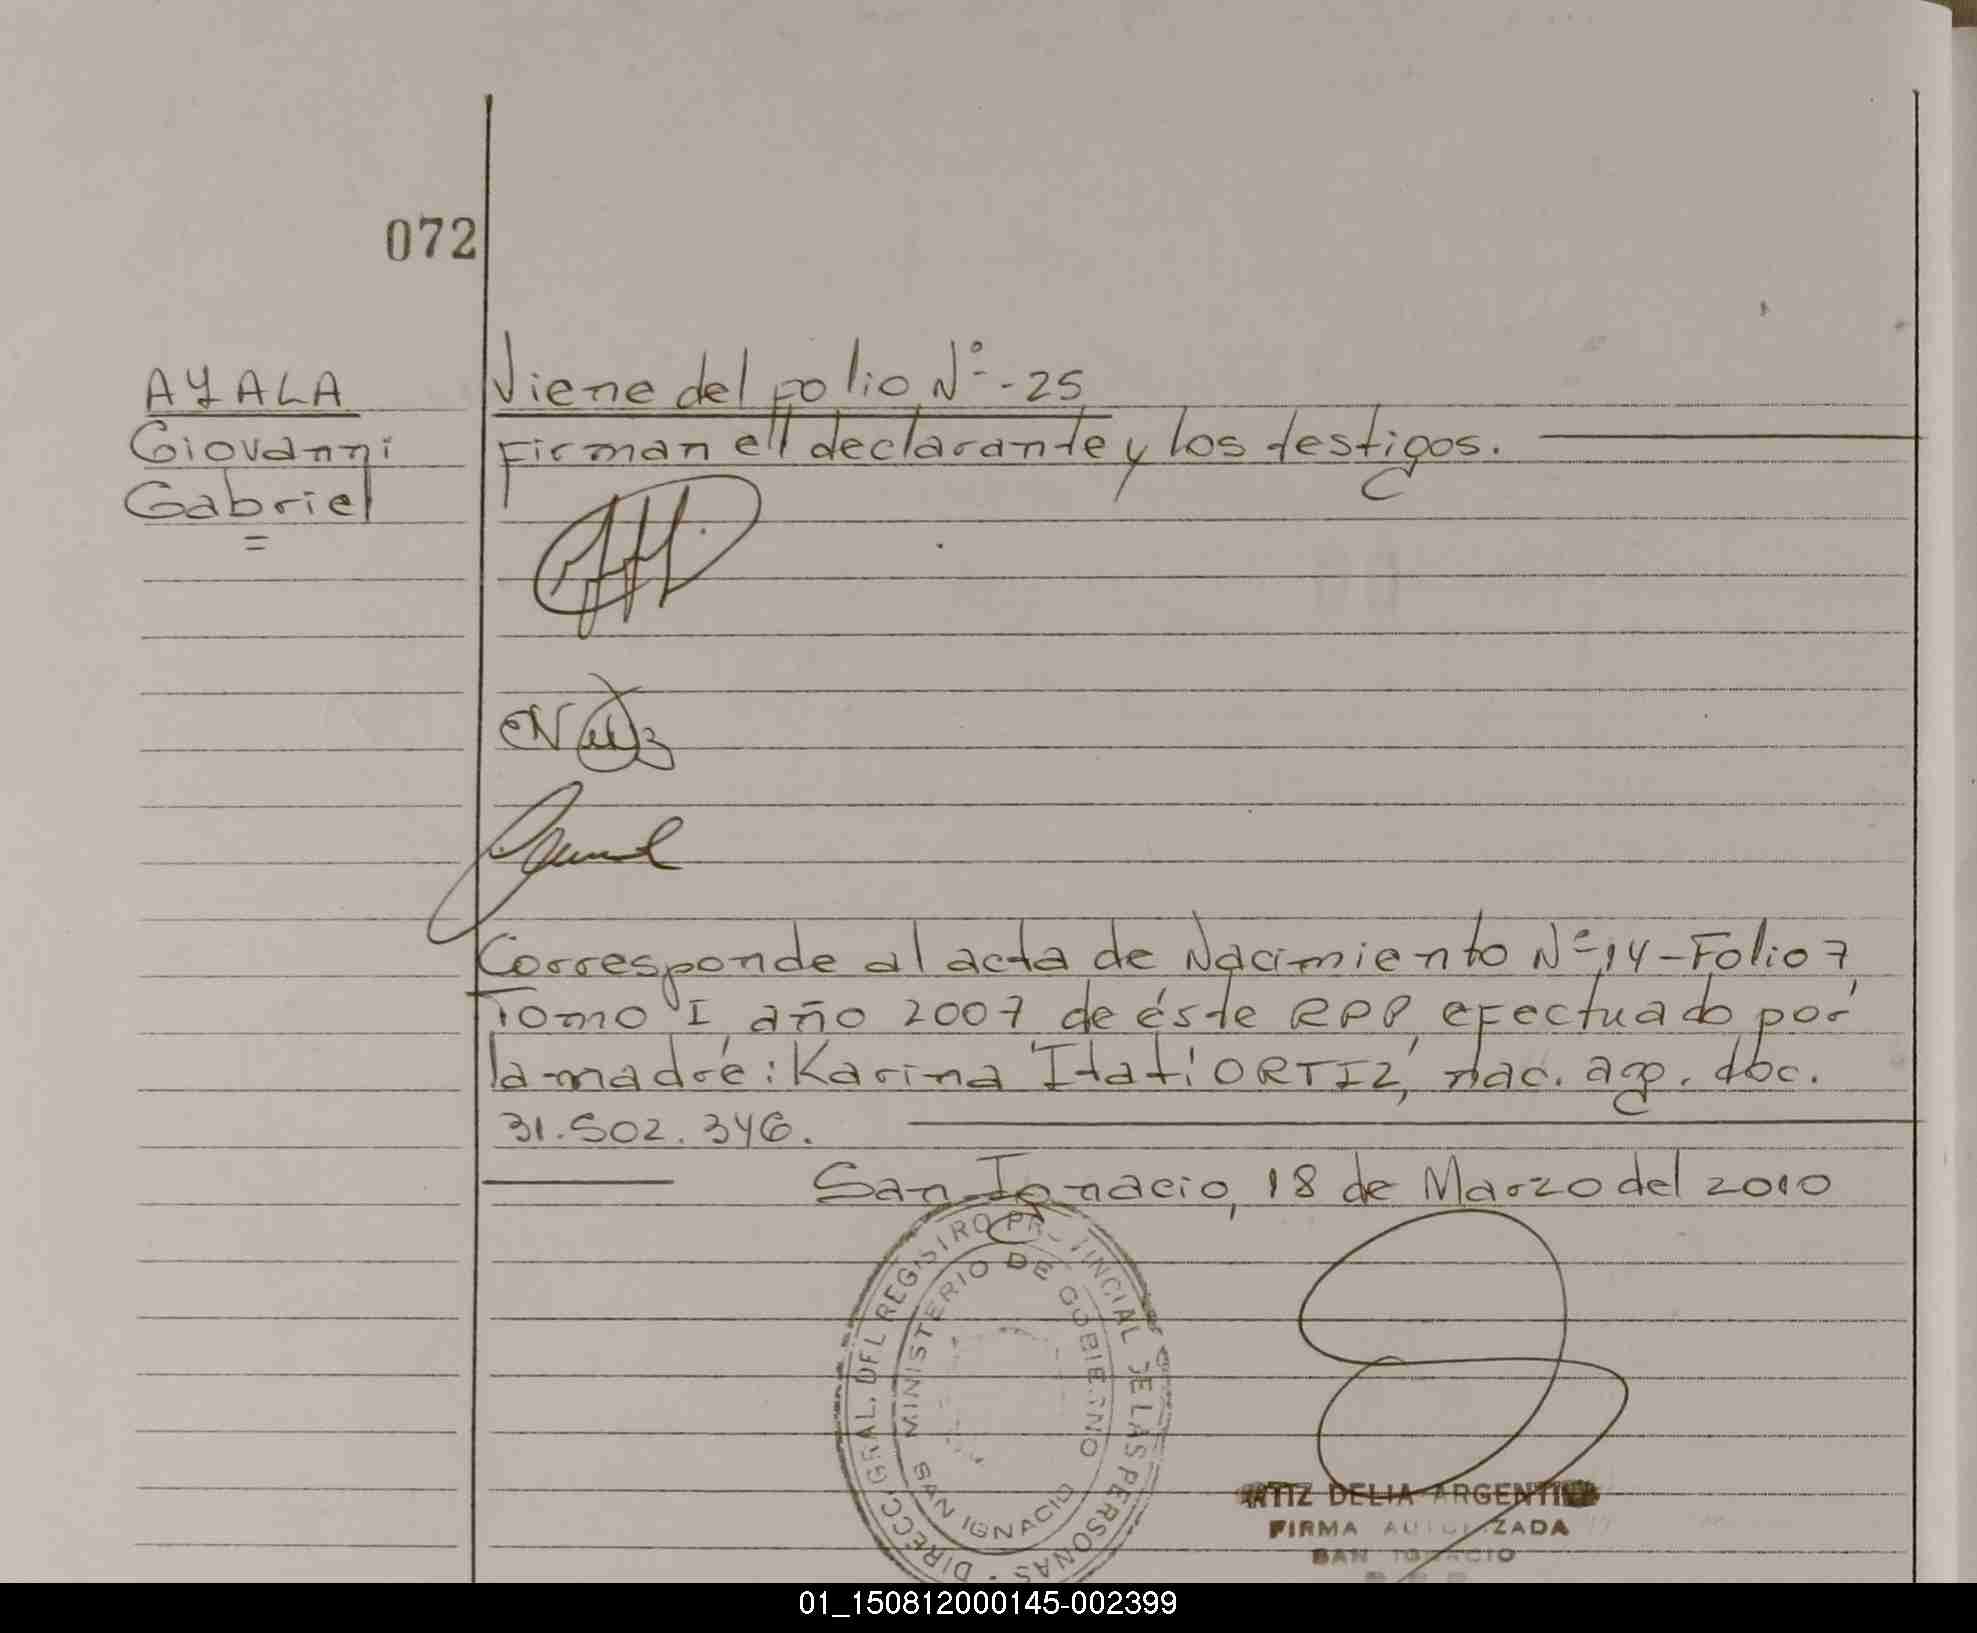 072
AYALA
Giovanni
Gabriel
=
Viene del folio Nº-25
Firman ell declarante y los testigos.
Corresponde al acta de Nacimiento Nº14-Folio 7
Tomo I, año 2007 de éste RPP, efectuado por
la madre: Karina Itatí ORTIZ, nac. arg. doc.
31.502.346.
San Ignacio, 18 de Marzo del 2010
DIRECC. GRAL. DEL REGISTRO PROVINCIAL DE LAS PERSONAS
MINISTERIO DE GOBIERNO
SAN IGNACIO
DELIA ARGENTINA
FIRMA AUTORIZADA
SAN IGNACIO
01_150812000145-002399